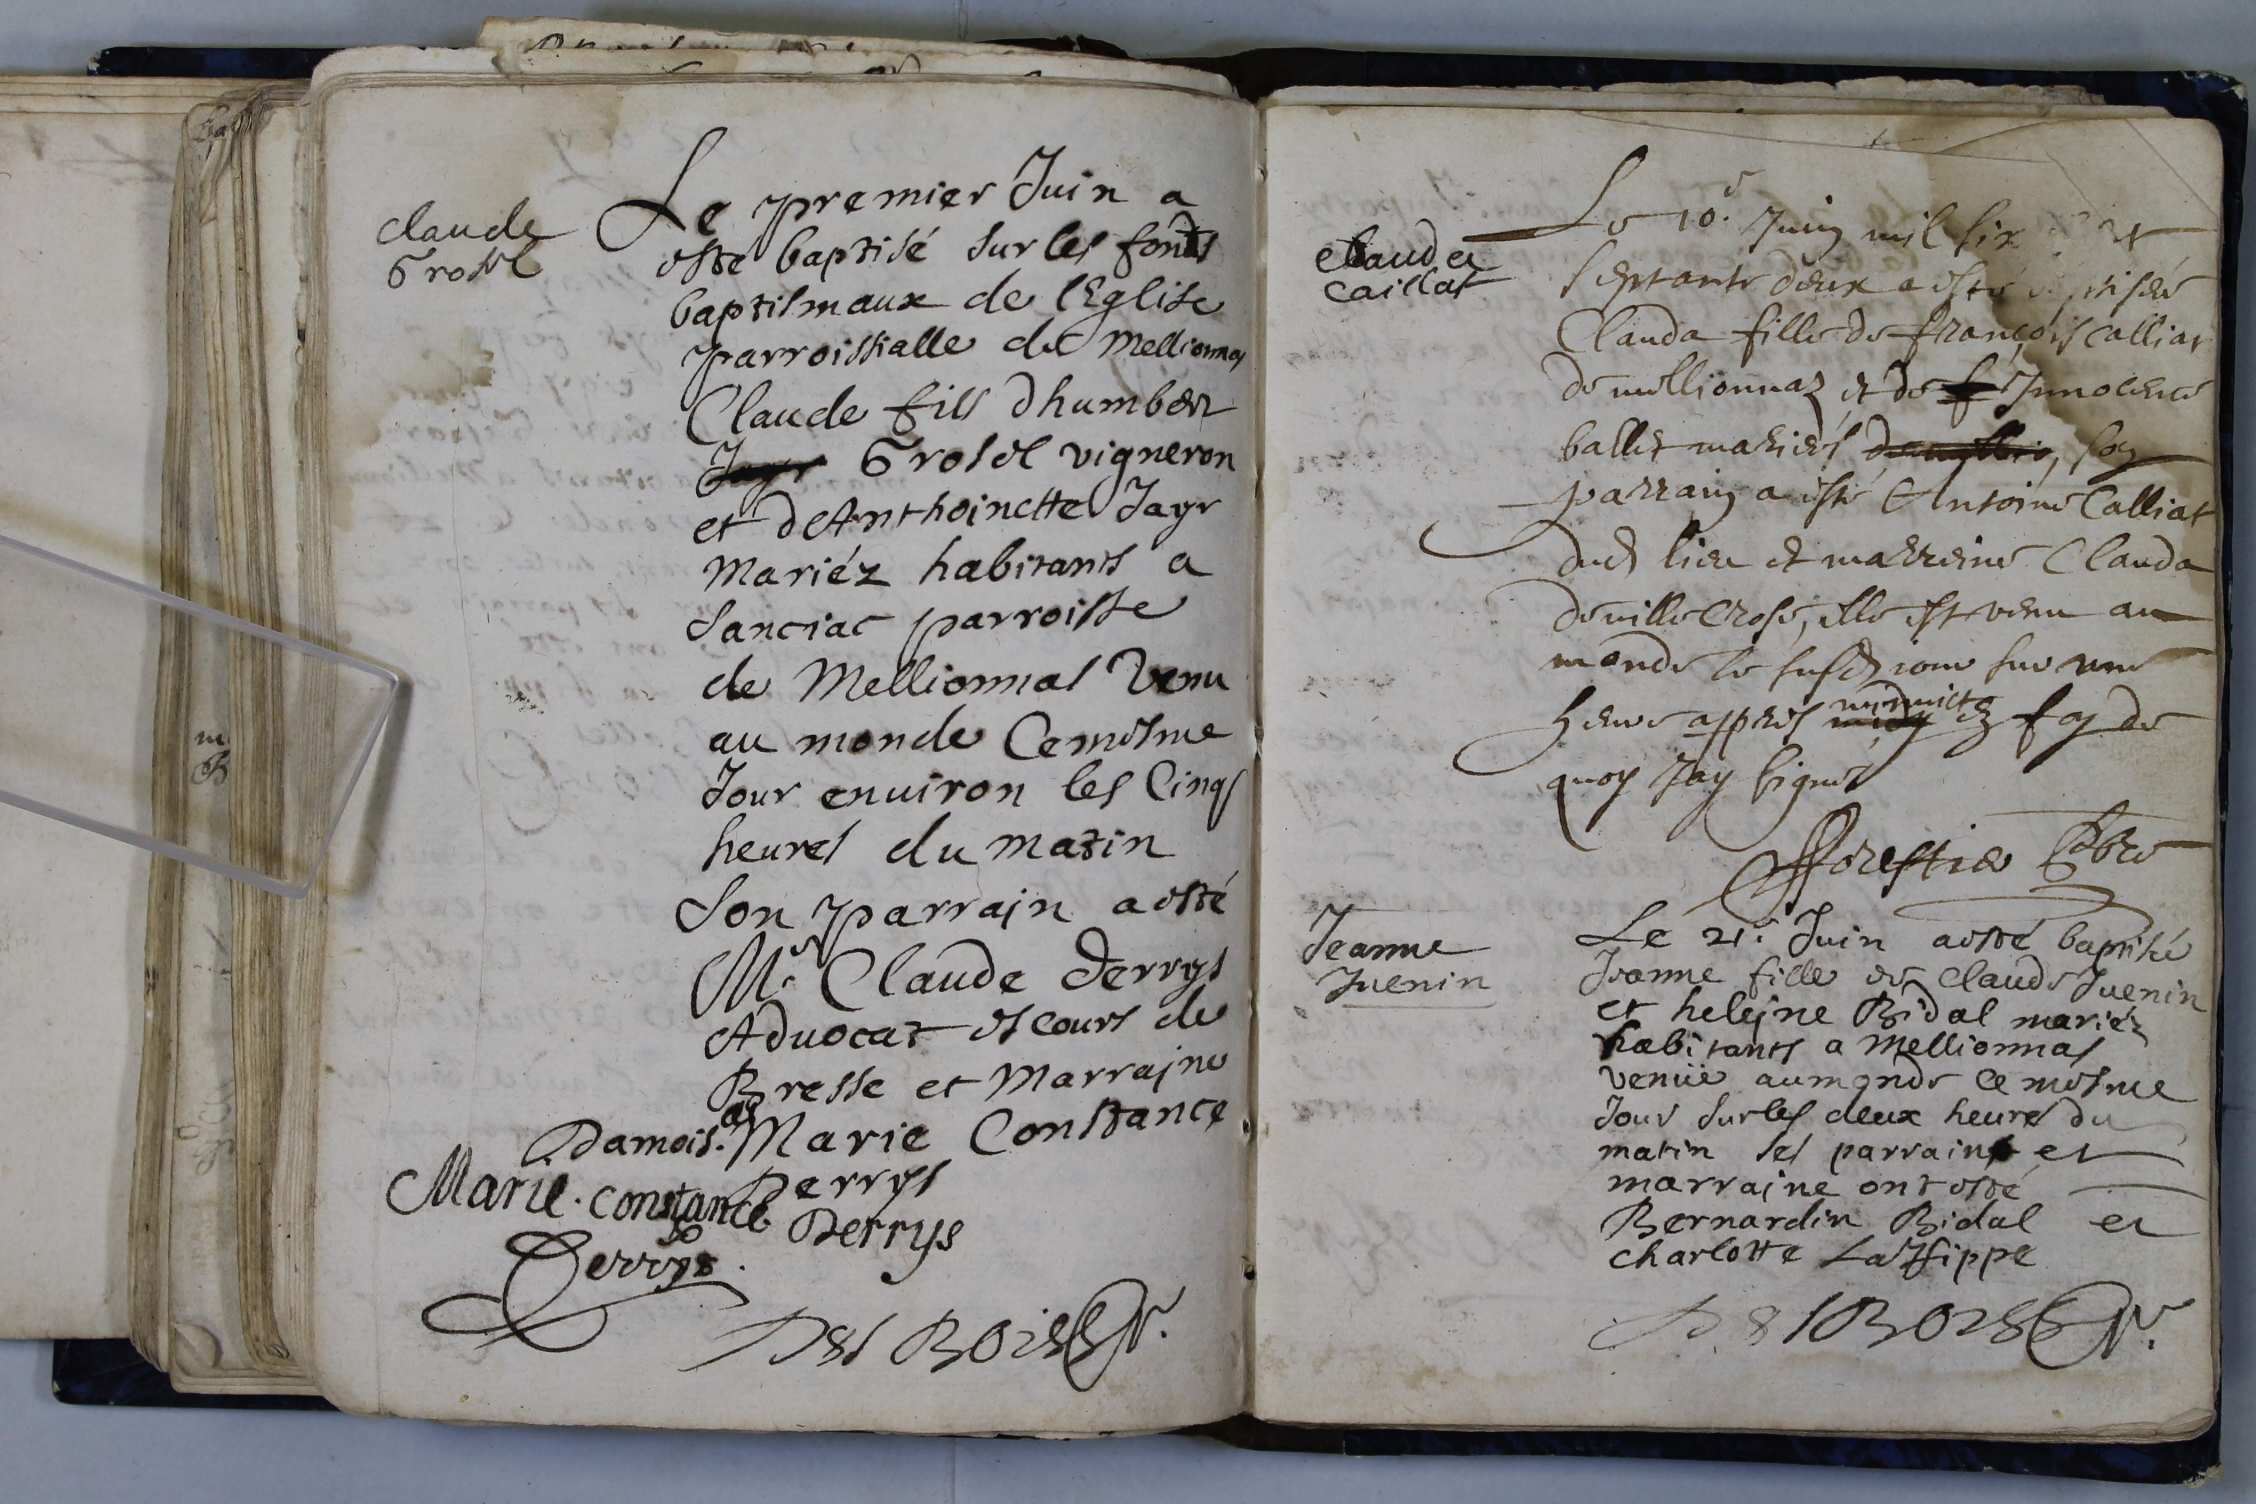 claude
Grosel
Le premier Juin a
esté baptisé sur les fonts
baptismaux de l'Eglise
parroissialle de Mellionnas
Claude fils d'humbert
Jayr Grosel vigneron
et d'Anthoinette Jayr
Mariéz habitants a
Sanciac parroisse
de Mellionnas Venu
au monde Ce mesme
Jour enuiron les Cinqs
heures du matin
Son parrain a esté
Mr. Claude derrys
Aduocat es cours de
Bresse et Marraine
Damois.lle Marie Constance
Derrys
Marie. constance Derrys
Derrys.
Des Bois
Clauda
Caillat
Le 10.e Juin mil six et
septante deux a esté baptisée
Clauda fille de françois Calliat
de mellionnaz et de f Innocence
ballet mariés son
parrain a esté Antoine Calliat
dud lieu et marreine Clauda
de villecrose, elle est venu au
monde le susd jour sur une
heure appres midy minuict foy de
quoy Jay signé
fforestier Pbre
Jeanne
Juenin
Le 21.e Juin a esté baptisé
Jeanne fille de Claude Juenin
et heleine Bidal mariéz
habitants a Mellionnas
venüe au monde Ce mesme
Jour sur les deux heures du
matin ses parrain et
marraine ont esté
Bernardin Bidal et
Charlotte
Des Bois